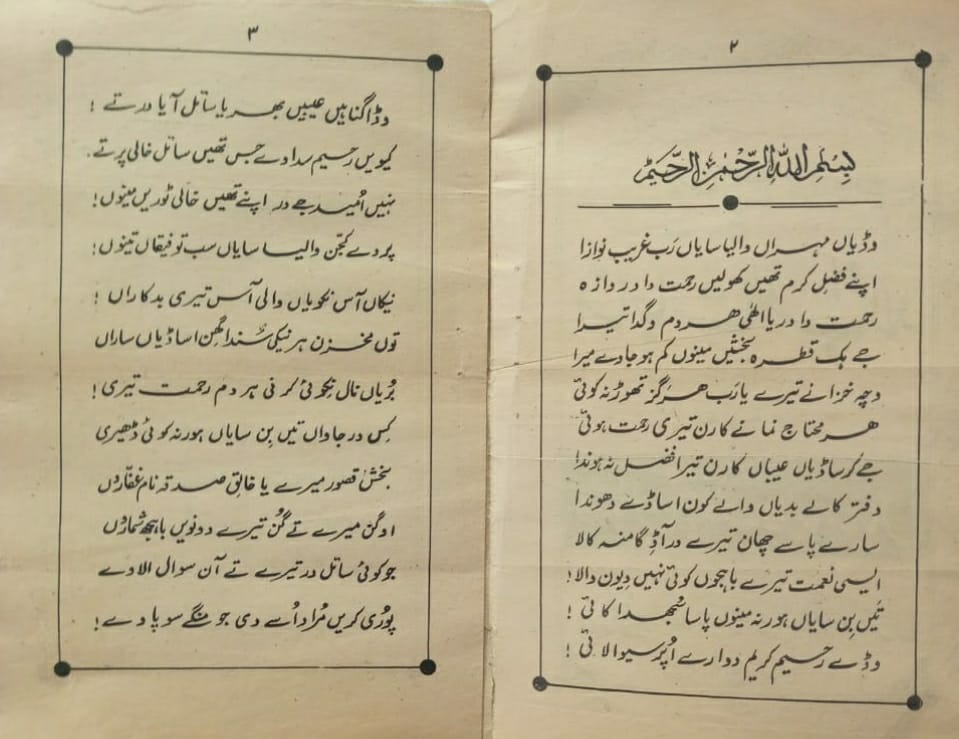 ٢
بِسْمِ اللّٰهِ الرَّحْمٰنِ الرَّحِيْمِ
وڈیاں مہراں والیا سایاں رَب غریب نوازا
اپنے فضل کرم تھیں کھولیں رحمت دا دروازہ
رحمت دا دریا الٰھی ھر دم وگدا تیرا
جے ہک قطرہ بخشیں مینوں کم ہو جاوے میرا
وچہ خزانے تیرے یارَب ھرگز تھوڑ نہ کوئی
ھر محتاج نمانے کارن تیری رحمت ہوئی
جے کر ساڈیاں عیباں کارن تیرا فضل نہ ہوندا
دفتر کالے بدیاں والے کون اساڈے دھوندا
سارے پاسے چھان تیرے در آڈِگا منہ کالا
ایسی نعمت تیرے باہجوں کوئی نہیں دیون والا!
تَیں بِن سایاں ہور نہ مینوں پاسا سُجھدا کائی!
وڈے رحیم کریم دوارے اُپر سیوا لائی!
٣
وڈا گناہیں عیبیں بھریا سائل آیا در تے!
کیویں رحیم سداوے جس تھیں سائل خالی پرتے.
نہیں اُمید جے در اپنے تھیں خالی ٹوریں مینوں!
پردے کجّن والیا سایاں سب توفیقاں تینوں!
نیکاں آس نکویاں والی آس تیری بدکاراں!
توں مخزن ہر نیکی سُندا لگھن اساڈیاں ساراں
بُریاں نال نکوئی کرنی ہر دم رحمت تیری!
کِس در جاواں تیں بِن سایاں ہور نہ کوئی ڈھیری
بخش قصور میرے یا خالق صدقہ نام غفاروں
اوگن میرے تے گُن تیرے دونویں باہجھ شماروں
جو کوئی سائل در تیرے تے آن سوال الاوے
پُوری کریں مُراد اُسے دی جو منگے سو پاوے!